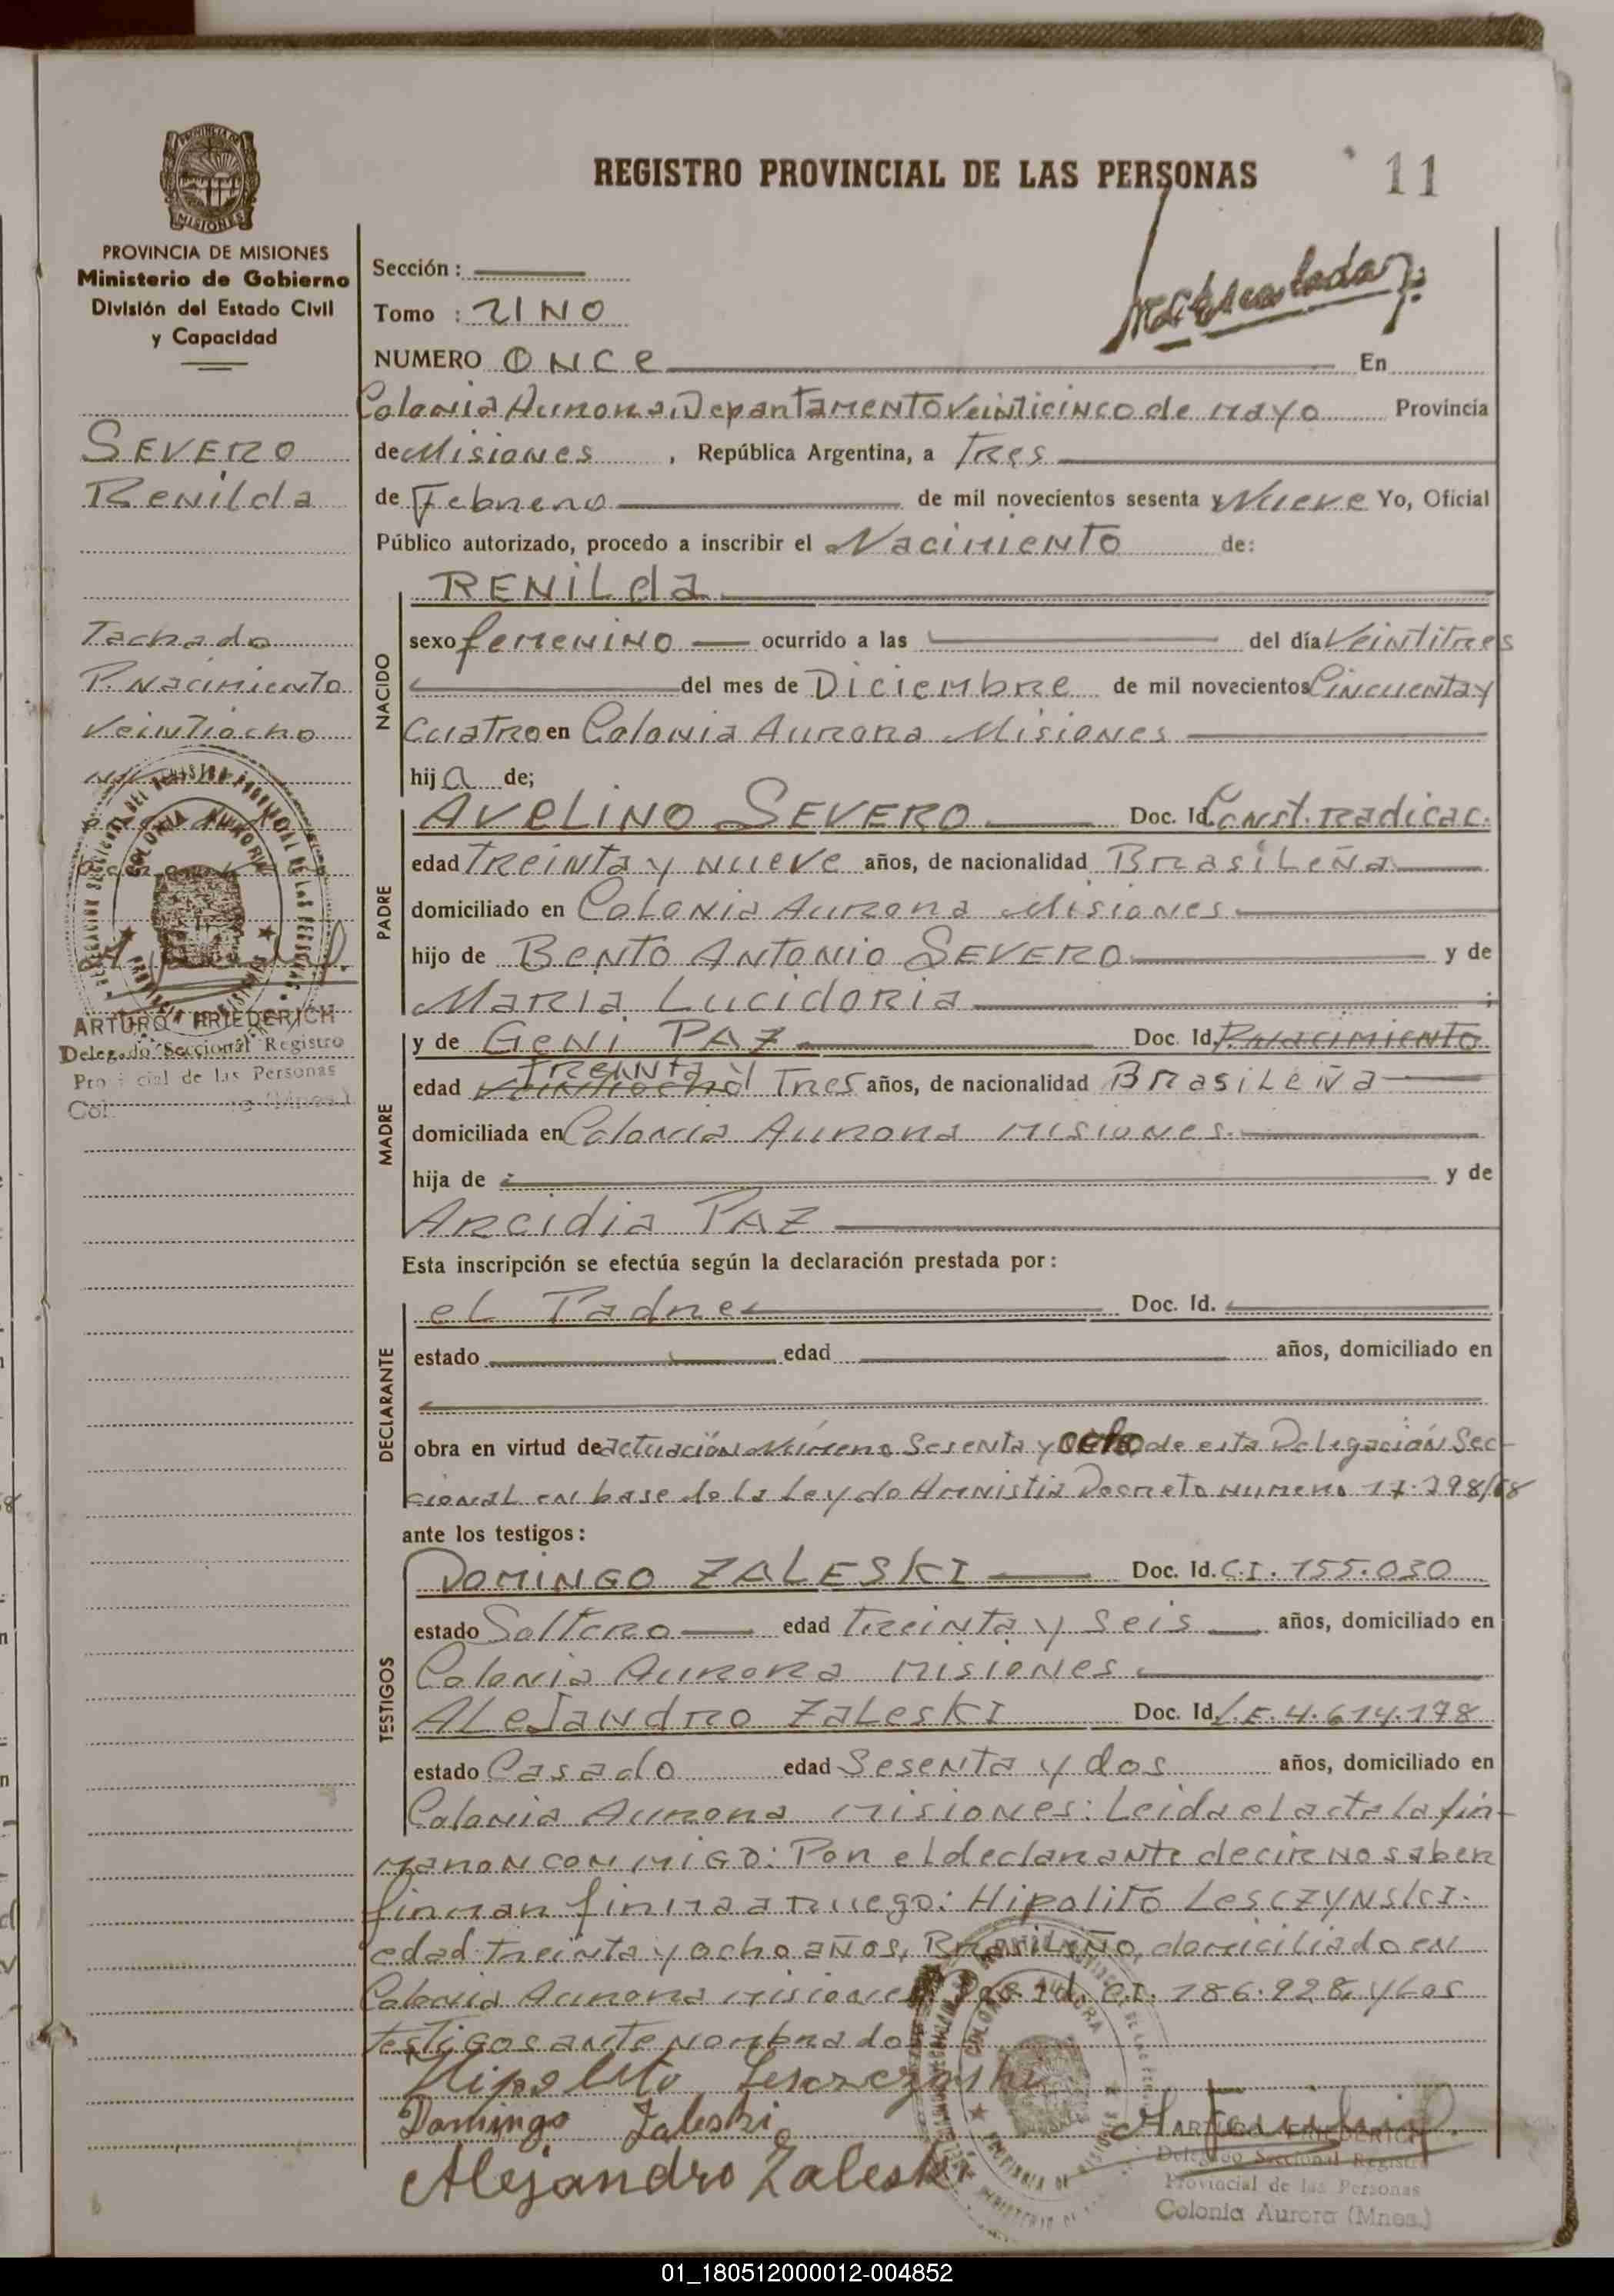 REGISTRO PROVINCIAL DE LAS PERSONAS
11
PROVINCIA DE
MISIONES
PROVINCIA DE MISIONES
Ministerio de Gobierno
División del Estado Civil
y Capacidad
SEVERO
Renilda
Tachado
P. Nacimiento
Veintiocho
ARTURO FRIEDERICH
Delegado Seccional Registro
Provincial de las Personas
Sección :
Tomo : UNO
NUMERO ONce En
Colonia Aurora, Departamento Veinticinco de mayo Provincia
de Misiones , República Argentina, a Tres
de Febrero de mil novecientos sesenta y Nueve Yo, Oficial
Público autorizado, procedo a inscribir el Nacimiento de:
NACIDO
RENILda
sexo femenino ocurrido a las del día Veintitres
del mes de Diciembre de mil novecientos Cincuenta y
Cuatro en Colonia Aurora Misiones
hija de;
PADRE
AVELINO SEVERO Doc. Id. Const. Radicac.
edad Treinta y nueve años, de nacionalidad Brasileña
domiciliado en Colonia Aurora Misiones
hijo de Bento Antonio SEVERO y de
Maria Lucidoria ;
MADRE
y de Geni PAZ Doc. Id. P. Nacimiento
Treinta y
edad Veintiocho Tres años, de nacionalidad Brasileña
domiciliada en Colonia Aurora Misiones.
hija de y de
Arcidia PAZ
Esta inscripción se efectúa según la declaración prestada por :
DECLARANTE
el Padre Doc. Id.
estado edad años, domiciliado en
obra en virtud de actuación Número Sesenta y ocho de esta Delegación Sec-
cional en base de la Ley de Amnistia Decreto numero 17.798/68
ante los testigos :
TESTIGOS
DOMINGO ZALESKI Doc. Id. C.I. 155.030
estado Soltero edad Treinta y Seis años, domiciliado en
Colonia Aurora Misiones
ALeJandro ZaLeskI Doc. Id. L.E. 4.614.178
estado Casado edad Sesenta y dos años, domiciliado en
Colonia Aurora Misiones: Leida el acta la fir-
maron con migo: Por el declarante decir no saber
firmar firma a ruego: Hipolito LescZYNSKI.
edad treinta y ocho años, Brasileño, domiciliado en
Colonia Aurora Misiones Doc. Id. C.I. 186.928, y Los
testigos ante nombrados
Hipolito
Domingo Zaleski
Alejandro Zaleski
ARTURO FRIEDERICH
Delegado Seccional Registro
Provincial de las Personas
Colonia Aurora (Mnes.)
01_180512000012-004852